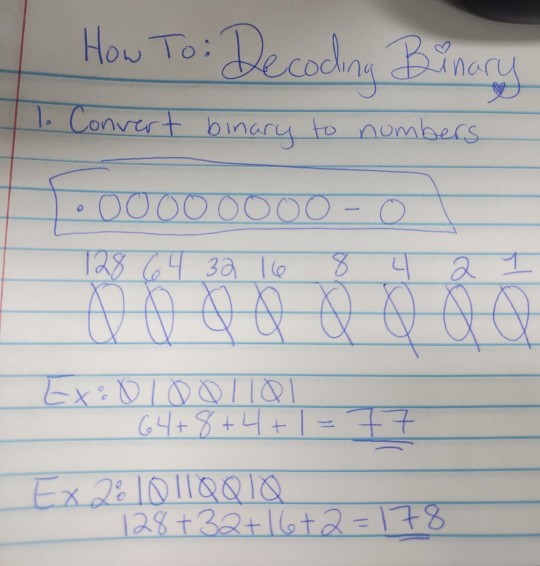 How To: Decoding Binary
1. Convert binary to numbers
• 00000000 - 0
128 64 32 16 8 4 2 1
0 0 0 0 0 0 0 0
Ex: 01001101
64+8+4+1 = 77
Ex 2: 10110010
128+32+16+2=178